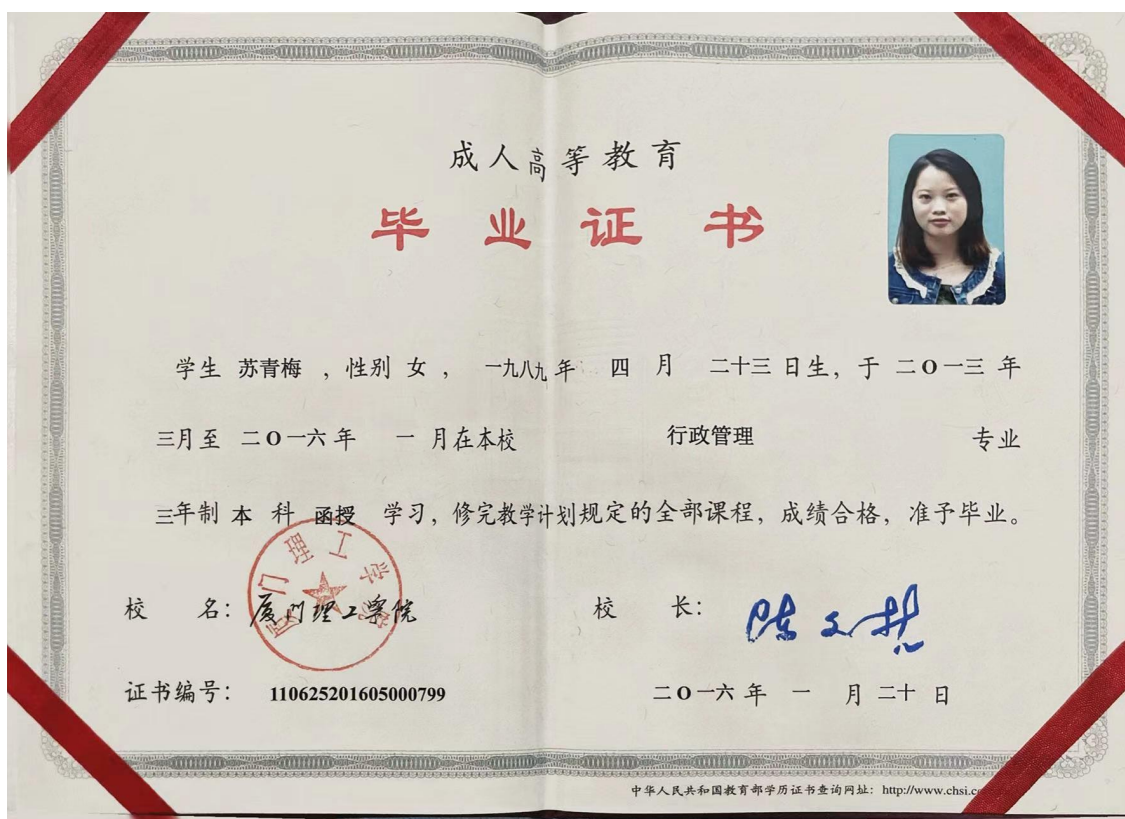 成人高等教育
毕业证书
学生 苏青梅 ，性别 女 ， 一九八九年 四 月 二十三 日生，于 二O一三 年
三月至 二O一六年 一 月在本校 行政管理 专业
三年制 本 科 函授 学习，修完教学计划规定的全部课程，成绩合格，准予毕业。
厦门理工学院
校 名：厦门理工学院 校 长：
证书编号： 110625201605000799 二O一六 年 一 月 二十 日
中华人民共和国教育部学历证书查询网址：http://www.chsi.c